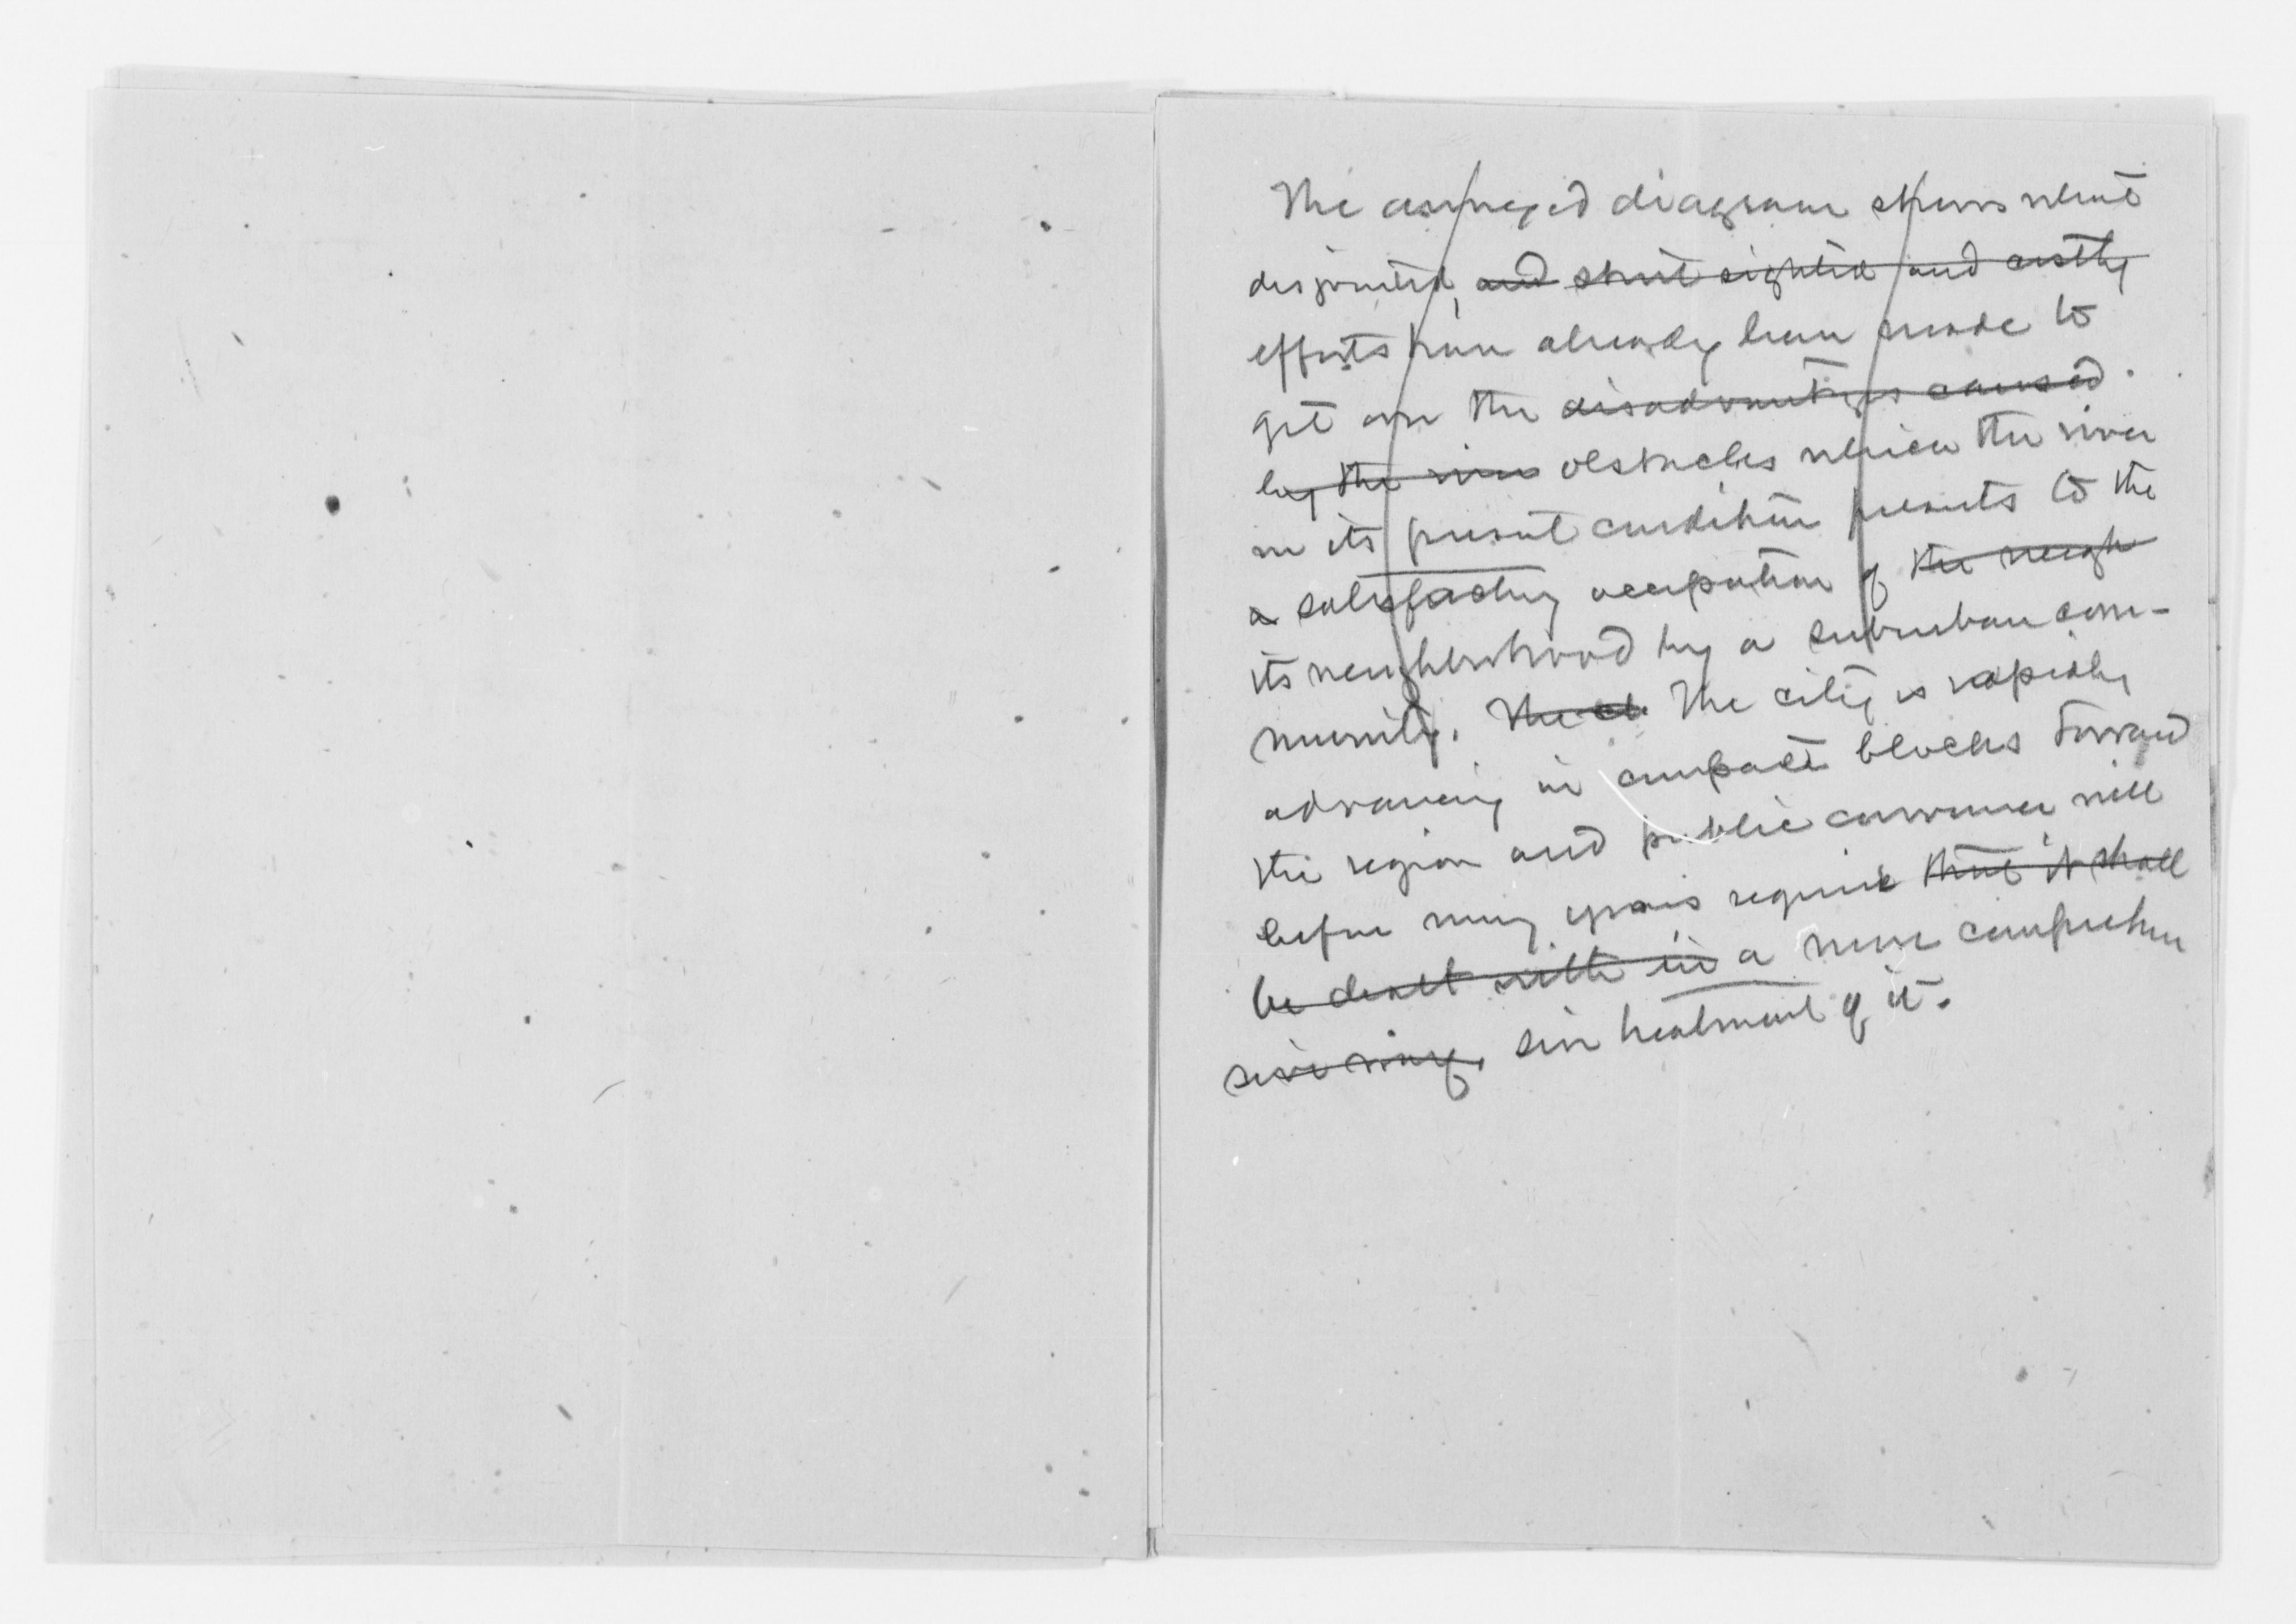 The annexed diagram shows what
disjointed, and short sighted and costly
efforts have already been made to
get over the disadvantages caused
by the river obstacles which the river
in its present condition presents to the
a satisfactory occupation of the neigh
its neighborhood by a suburban com-
munity. The ct The city is rapidly
advancing in compact blocks toward
the region and public convenience will
before many years require that it shall
be dealt with in a more comprehen
sive way. sive treatment of it.